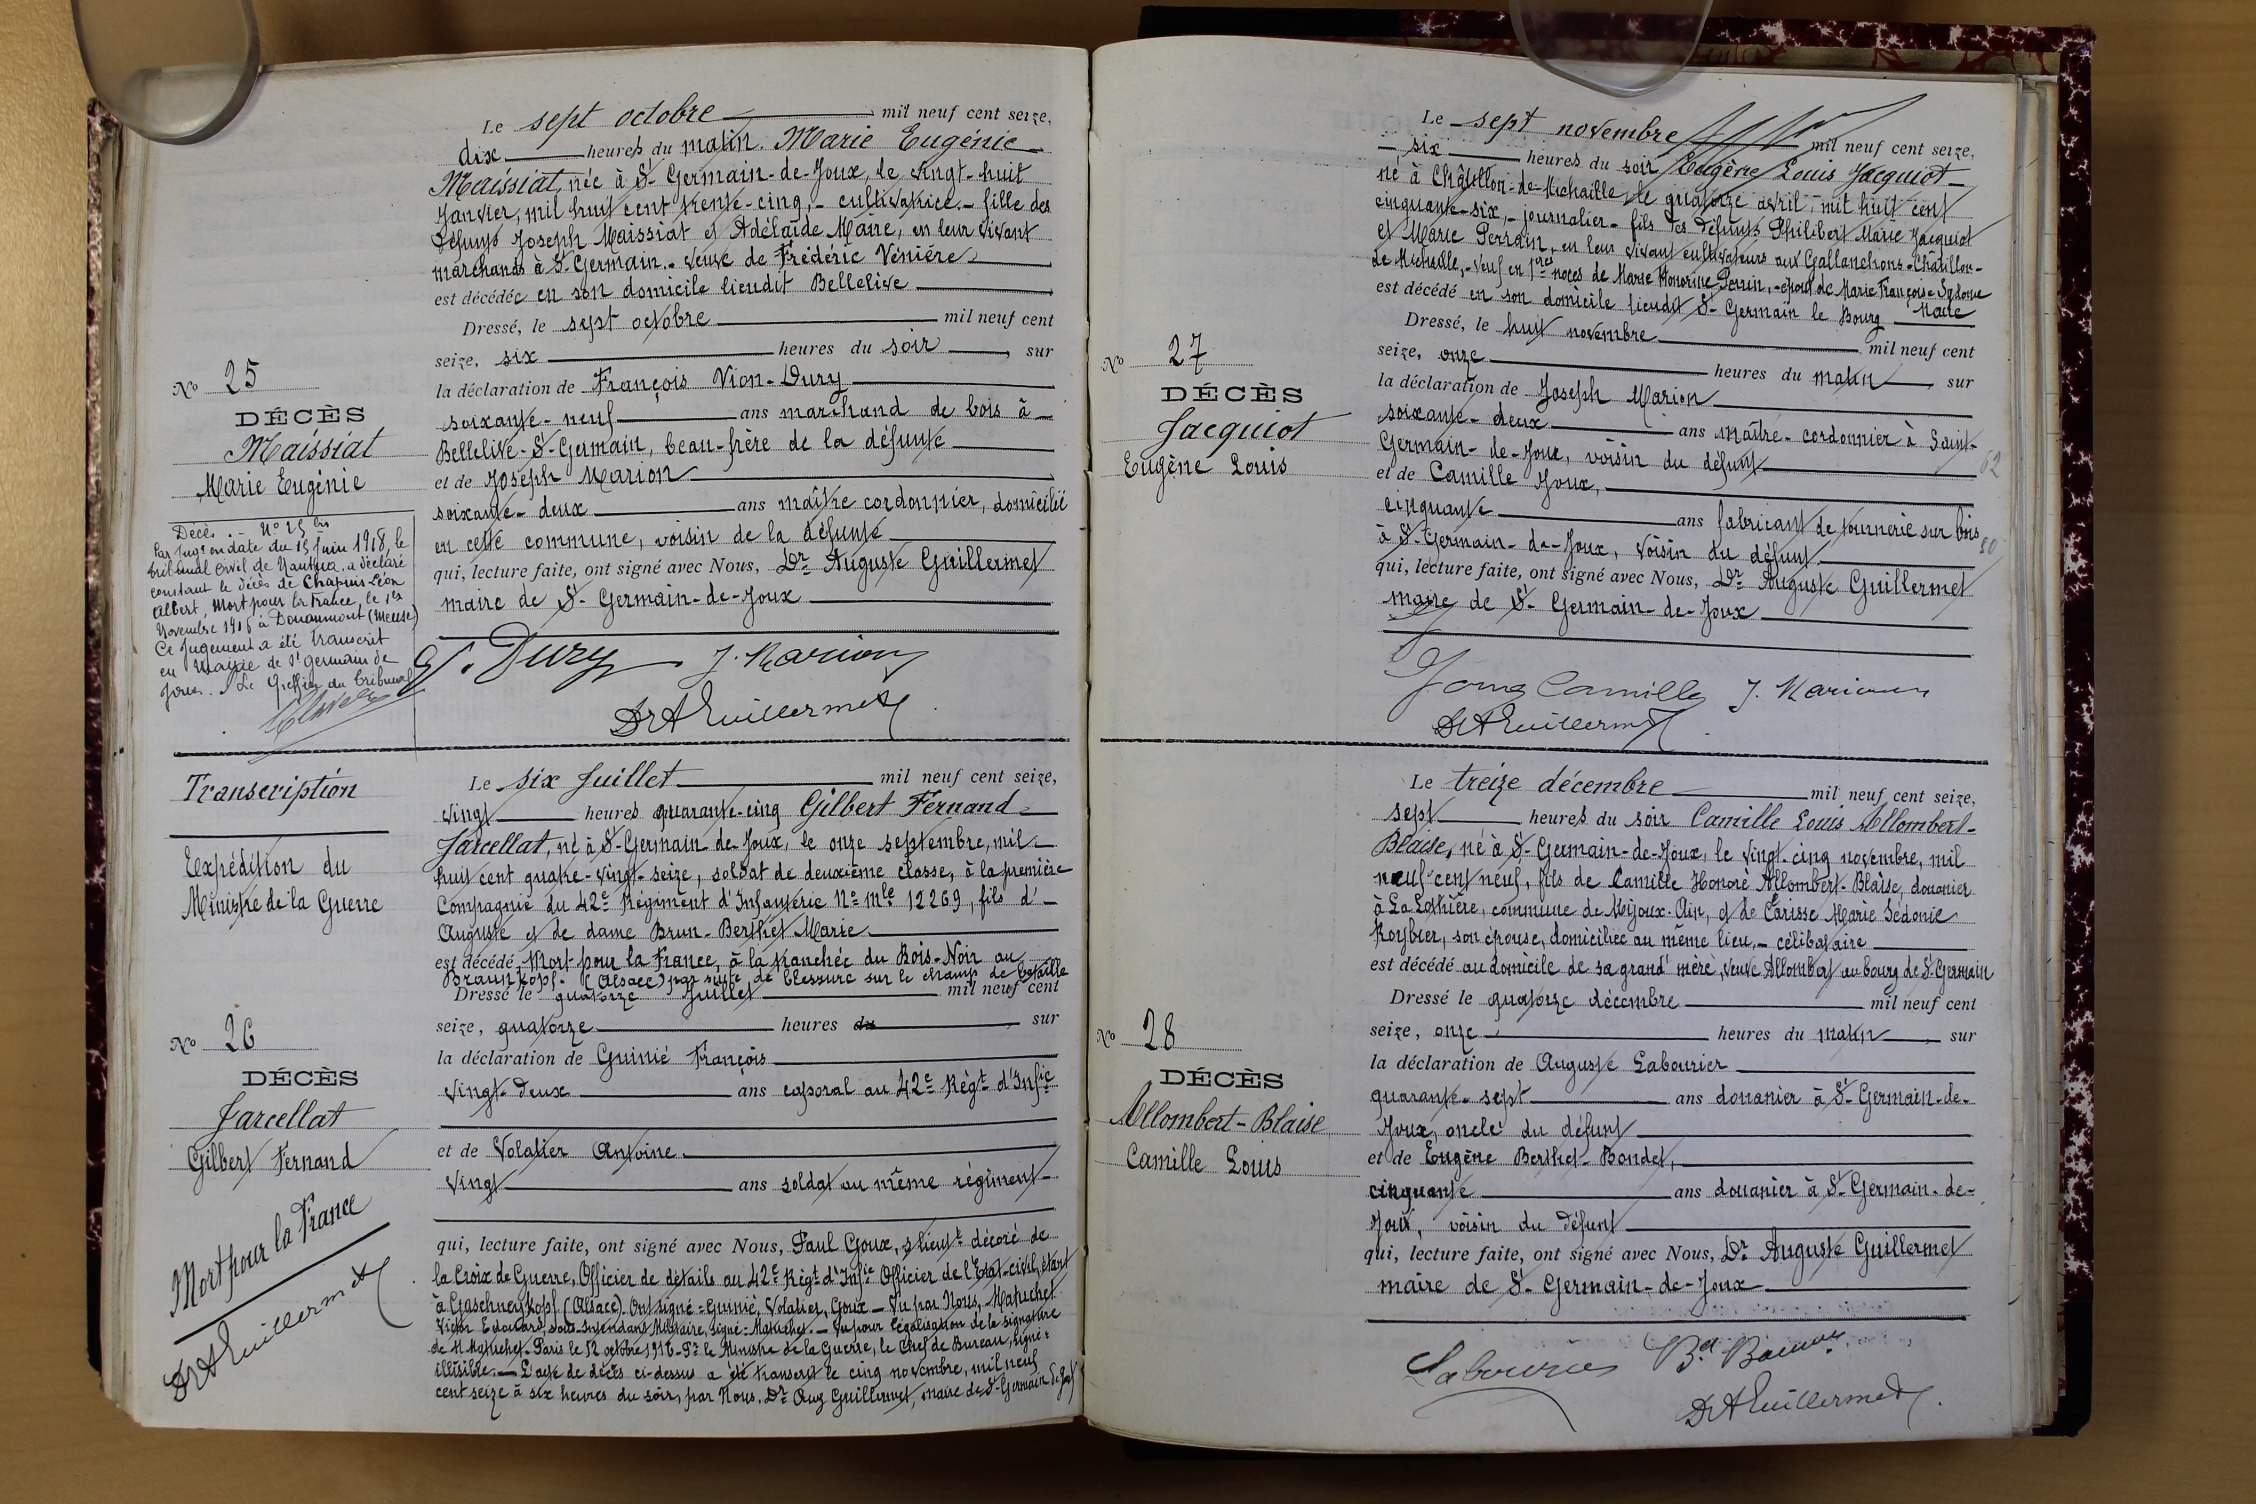 Le sept octobre mil neuf cent seize,
dix heures du matin. Marie Eugénie
Maissiat, née à St-Germain-de-Joux, le vingt-huit
Janvier, mil huit cent trente-cinq, - cultivatrice. - fille des
défunts Joseph Maissiat et Adélaïde Maire, en leur vivant
marchands à St-Germain. - veuve de Frédéric Vénière
est décédée en son domicile lieudit Bellelive
Dressé, le sept octobre mil neuf cent
seize, six heures du soir, sur
la déclaration de François Vion-Dury
soixante-neuf ans marchand de bois à
Bellelive-St-Germain, beau-frère de la défunte
et de Joseph Marion
soixante-deux ans maître cordonnier, domicilié
en cette commune, voisin de la défunte
qui, lecture faite, ont signé avec Nous, Dr Auguste Guillermet
maire de St-Germain-de-Joux
Dury J. Marion
Dr A Guillermet
No 25
DÉCÈS
Maissiat
Marie Eugénie
Décès. - No 25 bis
Par Jugt en date du 15 Juin 1918, le
tribunal civil de Nantua a déclaré
constant le décès de Chapuis Léon
Albert, Mort pour la France, le 1er
Novembre 1916 à Douaumont (Meuse)
Ce Jugement a été transcrit
en Mairie de St Germain de
Joux. Le Greffier du tribunal
Transcription
Expédition du
Ministre de la Guerre
No 26
DÉCÈS
Jarcellat
Gilbert Fernand
Mort pour la France
Dr A Guillermet
Le six Juillet mil neuf cent seize,
vingt heures quarante-cinq Gilbert Fernand
Jarcellat, né à St-Germain-de-Joux, le onze septembre, mil
huit cent quatre-vingt-seize, soldat de deuxième classe, à la première
Compagnie du 42e Régiment d'Infanterie No mle 12269, fils d'
Auguste et de dame Brun-Berthet Marie
est décédé, Mort pour la France, à la tranchée du Bois-Noir au
Braunkopf. (Alsace) par suite de blessure sur le champ de bataille
Dressé le quatorze Juillet mil neuf cent
seize, quatorze heures du sur
la déclaration de Guinié François
vingt-deux ans caporal au 42e Régt d'Infie
et de Volatier Antoine
vingt ans soldat au même régiment
qui, lecture faite, ont signé avec Nous, Paul Goux, s/lieutt décoré de
la Croix de Guerre, Officier de détails au 42e Régt d'Infie Officier de l'Etat-civil, étant
à Gaschneykopf (Alsace). Ont signé = Guinié, Volatier, Goux - Vu par Nous, Matuchet
Victor Edouard, sous-Intendant Militaire, signé = Matuchet. - Vu pour légalisation de la signature
de M Matuchet. Paris le 12 octobre 1916 - Pr le Ministre de la Guerre, le Chef de Bureau, signé =
illisible. - L'acte de décès ci-dessus a été transcrit le cinq novembre, mil neuf
cent seize à six heures du soir, par Nous. Dr Aug Guillermet, maire de St-Germain de Joux
Le sept novembre mil neuf cent seize,
six heures du soir Eugène Louis Jacquiot
né à Châtillon-de-Michaille le quatorze avril, mil huit cent
cinquante-six, - journalier - fils des défunts Philibert Marie Jacquiot
et Marie Perrain, en leur vivant cultivateurs aux Gallanchons-Châtillon-
de Michaille, - veuf en 1ères noces de Marie Honorine Perrin, - époux de Marie Françoise Sydonie
Maire
est décédé en son domicile lieudit St-Germain le Bourg
Dressé, le huit novembre mil neuf cent
seize, onze heures du matin, sur
la déclaration de Joseph Marion
soixante-deux ans maître-cordonnier à Saint-
Germain-de-Joux, voisin du défunt
62
et de Camille Joux,
cinquante ans fabricant de tournerie sur bois
à St-Germain-de-Joux, voisin du défunt
50
qui, lecture faite, ont signé avec Nous, Dr Auguste Guillermet
maire de St-Germain-de-Joux
Joux Camille J. Marion
Dr A Guillermet
No 27
DÉCÈS
Jacquiot
Eugène Louis
Le treize décembre mil neuf cent seize,
sept heures du soir Camille Louis Allombert-
Blaise, né à St-Germain-de-Joux, le vingt-cinq novembre, mil
neuf-cent neuf, fils de Camille Honoré Allombert-Blaise, douanier
à La Lothière, commune de Mijoux-Ain, et de Clarisse Marie Sédonie
Roybier, son épouse, domiciliée au même lieu, - célibataire
est décédé au domicile de sa grand'mère, veuve Allombert au bourg de St-Germain
Dressé le quatorze décembre mil neuf cent
seize, onze heures du matin, sur
la déclaration de Auguste Labourier
quarante-sept ans douanier à St-Germain-de-
Joux, oncle du défunt
et de Eugène Berthet-Bondet,
cinquante ans douanier à St-Germain-de-
Joux, voisin du défunt
qui, lecture faite, ont signé avec Nous, Dr Auguste Guillermet
maire de St-Germain-de-Joux
Labourier
Dr A Guillermet
No 28
DÉCÈS
Allombert-Blaise
Camille Louis